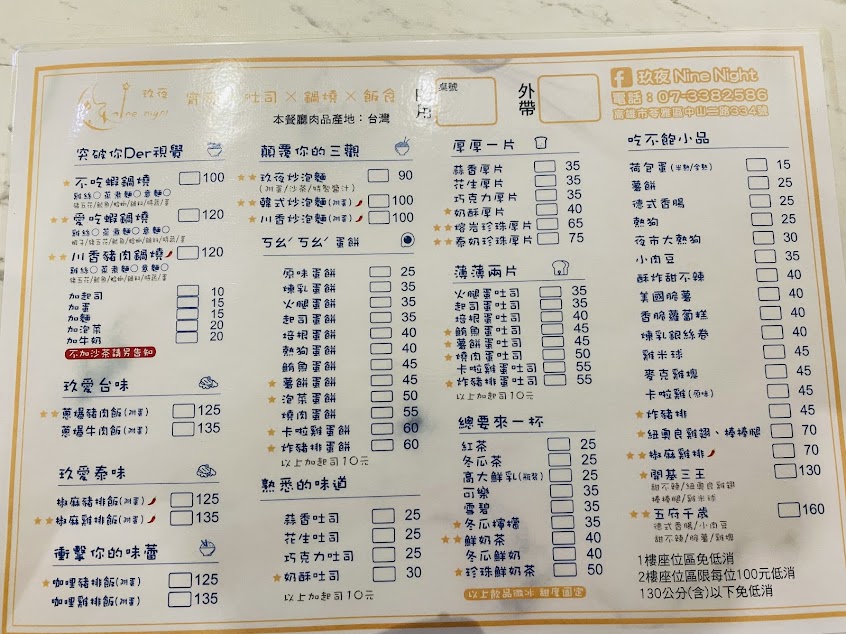 玖夜
nine night
宵夜×吐司×鍋燒×飯食
本餐廳肉品產地：台灣
內用
桌號
外帶
玖夜 Nine Night
電話：07-3382586
高雄市苓雅區中山二路334號
突破你Der視覺
★不吃蝦鍋燒 100
雞絲○ 蒸煮麵○ 意麵○
★★愛吃蝦鍋燒 120
雞絲○ 蒸煮麵○ 意麵○
★★川香豬肉鍋燒 120
雞絲○ 蒸煮麵○ 意麵○
加起司 10
加蛋 15
加麵 15
加泡菜 20
加牛奶 20
不加沙茶請另告知
玖愛台味
★★蔥爆豬肉飯(附蛋) 125
蔥爆牛肉飯(附蛋) 135
玖愛泰味
椒麻豬排飯(附蛋) 125
★★椒麻雞排飯(附蛋) 135
衝擊你的味蕾
★咖哩豬排飯(附蛋) 125
咖哩雞排飯(附蛋) 135
顛覆你的三觀
★★玖夜炒泡麵 90
(附蛋/沙茶/特製醬汁)
★★韓式炒泡麵(附蛋) 100
★川香炒泡麵(附蛋) 100
ㄎㄠˊㄎㄠˊ蛋餅
原味蛋餅 25
煉乳蛋餅 35
火腿蛋餅 35
起司蛋餅 35
培根蛋餅 40
熱狗蛋餅 40
鮪魚蛋餅 45
★薯餅蛋餅 45
★泡菜蛋餅 50
燒肉蛋餅 55
★卡啦雞蛋餅 60
★炸豬排蛋餅 60
以上加起司10元
熟悉的味道
蒜香吐司 25
花生吐司 25
巧克力吐司 25
★奶酥吐司 30
以上加起司10元
厚厚一片
蒜香厚片 35
花生厚片 35
巧克力厚片 35
★奶酥厚片 40
★★熔岩珍珠厚片 65
★★泰奶珍珠厚片 75
薄薄兩片
火腿蛋吐司 35
起司蛋吐司 35
培根蛋吐司 40
★鮪魚蛋吐司 45
★薯餅蛋吐司 45
★燒肉蛋吐司 50
卡啦雞蛋吐司 55
★炸豬排蛋吐司 55
以上加起司10元
總要來一杯
紅茶 25
冬瓜茶 25
高大鮮乳(瓶裝) 25
可樂 35
雪碧 35
★冬瓜檸檬 35
★★鮮奶茶 40
冬瓜鮮奶 40
★珍珠鮮奶茶 50
以上飲品微冰 甜度固定
吃不飽小品
荷包蛋(半熟/全熟) 15
薯餅 25
德式香腸 25
熱狗 25
夜市大熱狗 30
小肉豆 35
酥炸甜不辣 40
美國脆薯 40
香脆蘿蔔糕 40
煉乳銀絲卷 40
雞米球 45
麥克雞塊 45
卡啦雞(原味) 45
★炸豬排 45
★紐奧良雞翅、棒棒腿 70
★★椒麻雞排 70
★開基三王 130
甜不辣/紐奧良雞翅
棒棒腿/雞米球
★★五府千歲 160
德式香腸/小肉豆
甜不辣/脆薯/雞塊
1樓座位區免低消
2樓座位區限每位100元低消
130公分(含)以下免低消